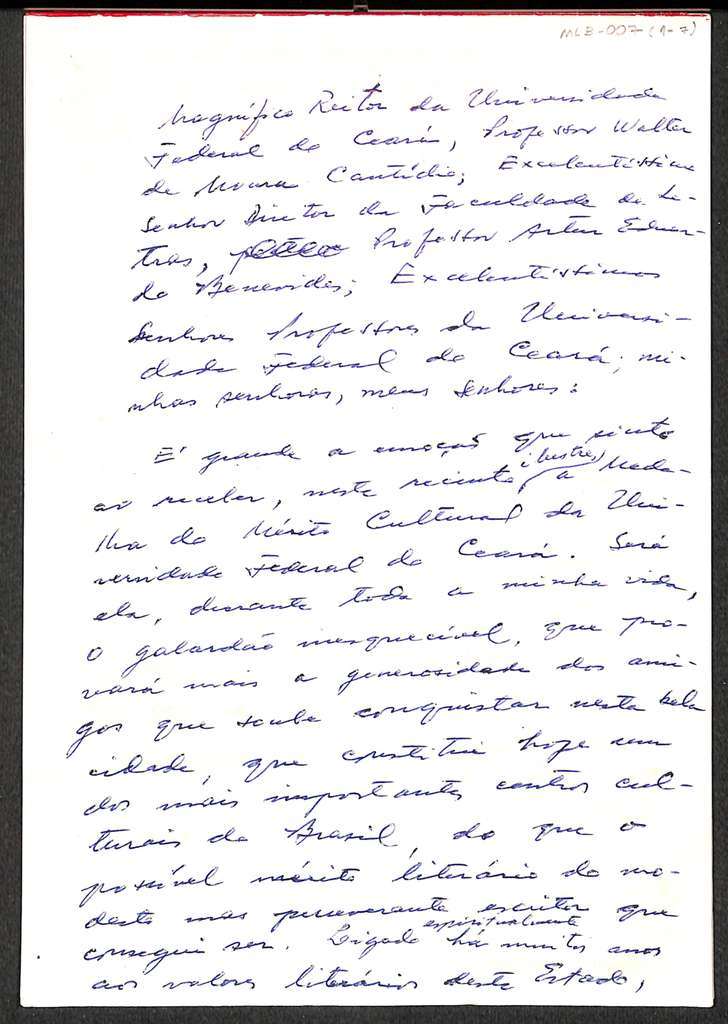 MLB-007(1-7)
Magnífico Reitor da Universidade
Federal do Ceará, Professor Walter
de Moura Cantídio; Excelentíssimo
Senhor Diretor da Faculdade de Le-
tras, Professor Artur Eduar-
do Benevides; Excelentíssimos
Senhores Professores da Universi-
dade Federal do Ceará; mi-
nhas senhoras, meus senhores:
É grande a emoção que sinto
ao receber, neste recinto ilustre, a Meda-
lha do Mérito Cultural da Uni-
versidade Federal do Ceará. Será
ela, durante toda a minha vida,
o galardão inesquecível, que pro-
vará mais a generosidade dos ami-
gos que soube conquistar nesta bela
cidade, que constitui hoje um
dos mais importantes centros cul-
turais do Brasil, do que o
possível mérito literário do mo-
desto mas perseverante escritor que
consegui ser. Ligado espiritualmente há muitos anos
aos valores literários deste Estado,